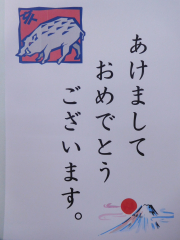 亥
あけまして
おめでとう
ございます。